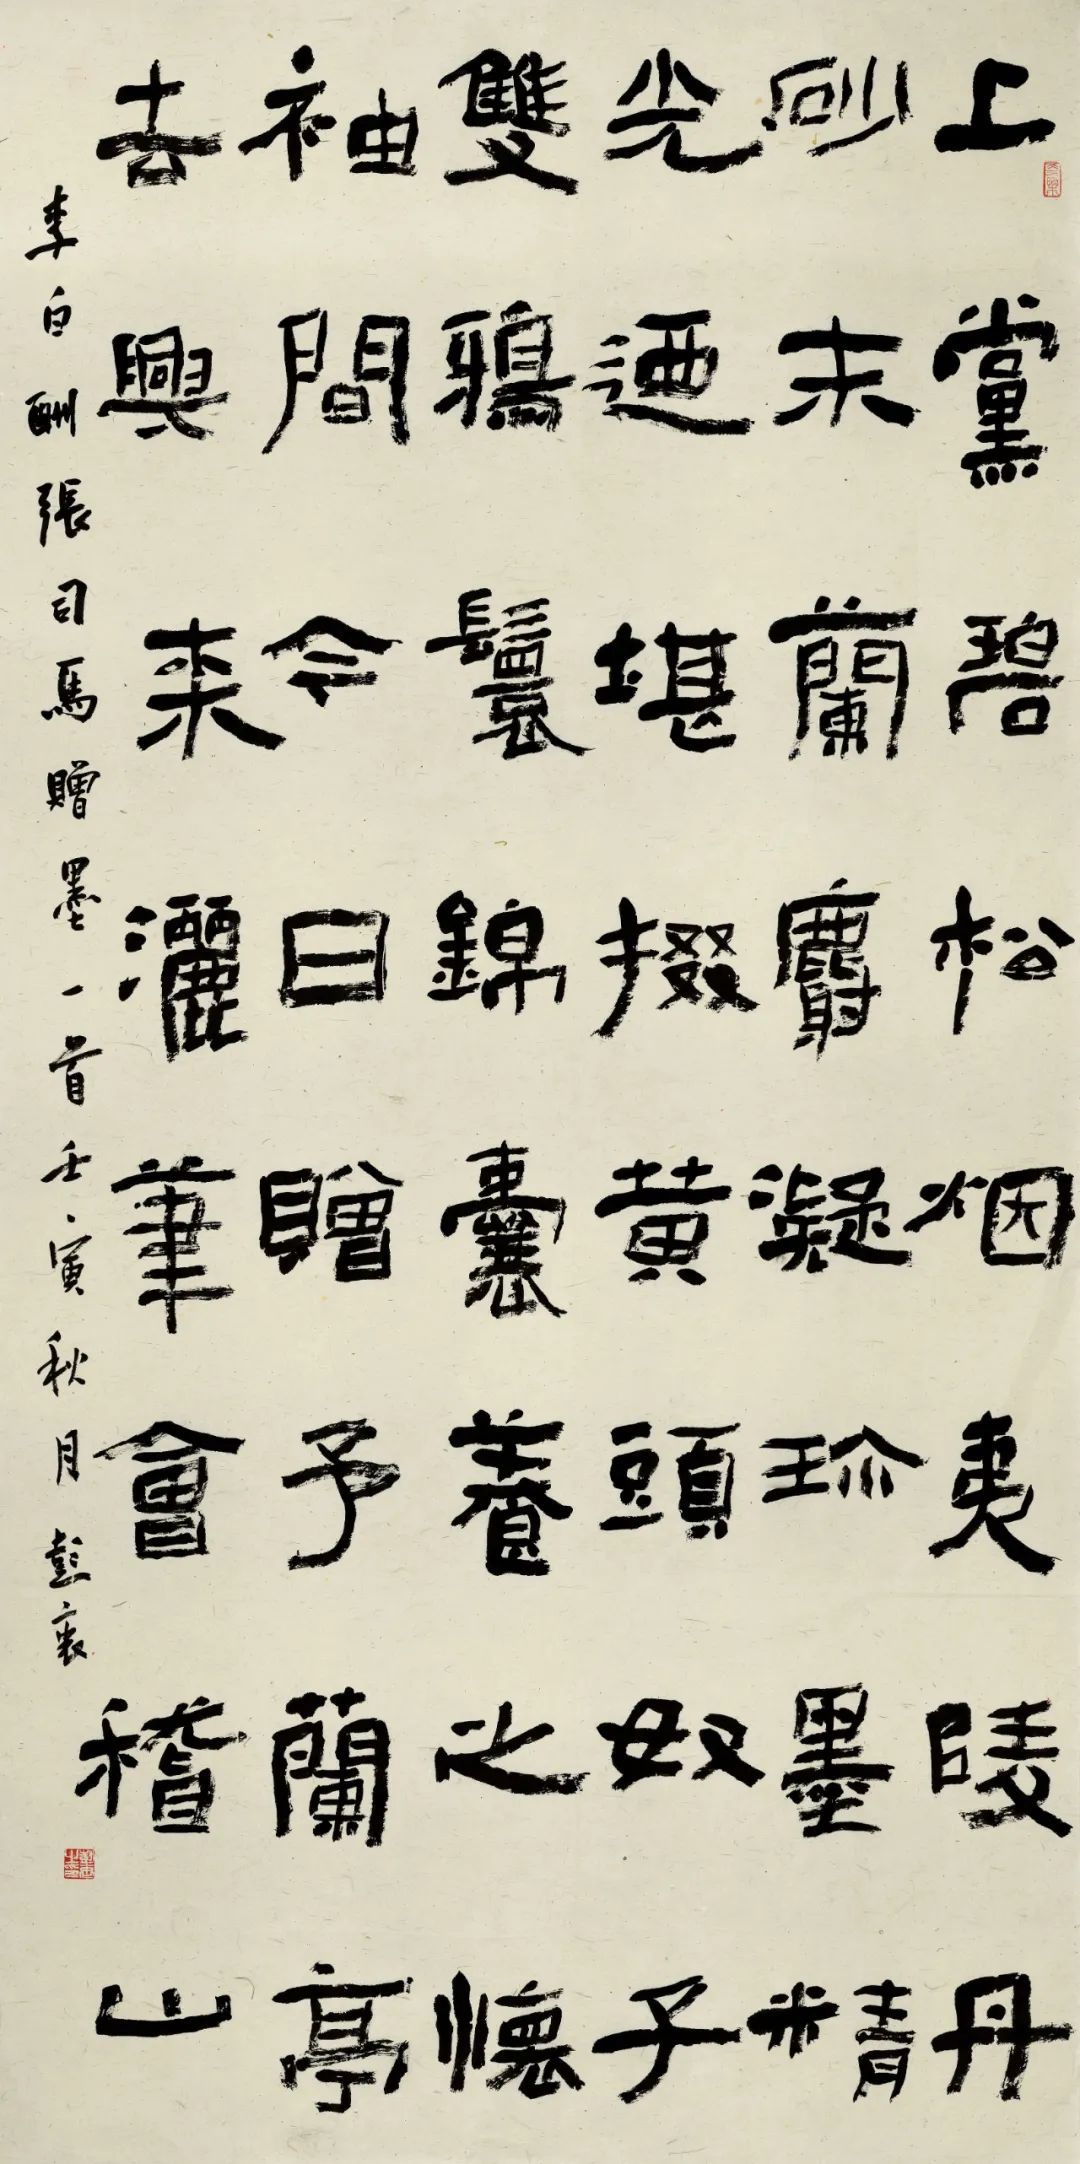 上黨碧松烟夷陵丹
砂末蘭麝凝珎墨精
光迺堪掇黄頭奴子
雙鴉鬟錦囊養之懷
袖間今日贈予蘭亭
去興来灑筆會稽山
李白酬張司馬贈墨一首壬寅秋月彭